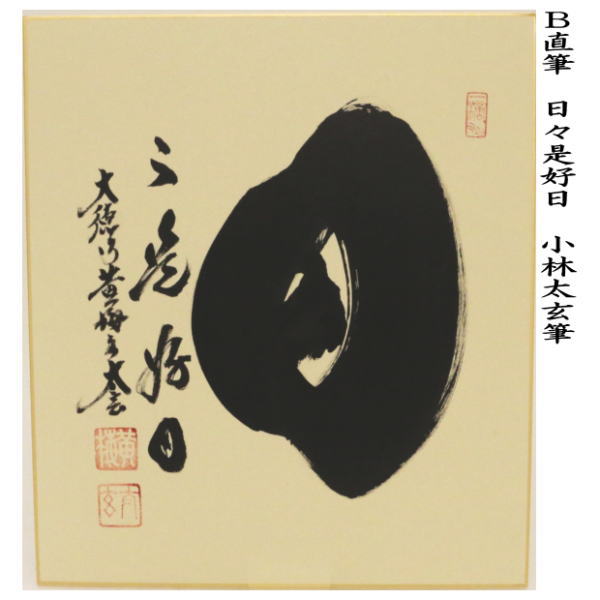 B直筆 日々是好日 小林太玄筆
日
々是好日
大徳寺黄梅主太玄
黄梅
太玄